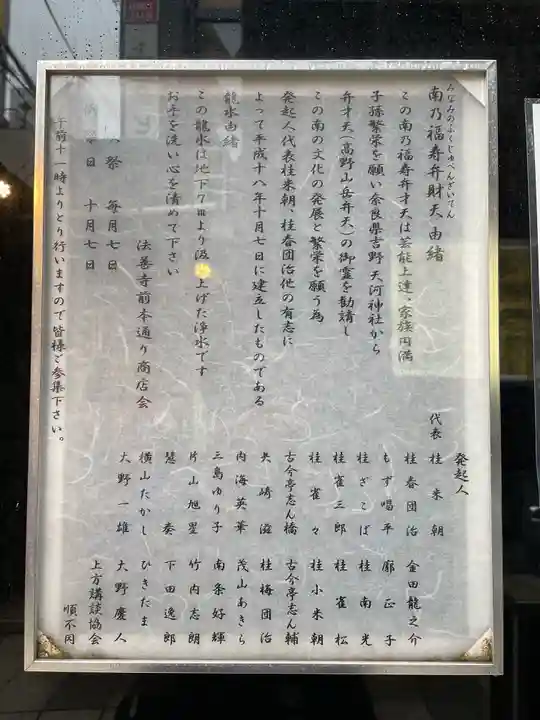 みなみのふくじゅべんざいてん
南乃福寿弁財天由緒
この南乃福寿弁才天は芸能上達、家族円満
子孫繁栄を願い奈良県吉野天河神社から
弁才天(高野山岳弁天)の御霊を勧請し
この南の文化の発展と繁栄を願う為
発起人代表桂米朝、桂春団治他の有志に
よって平成十八年十月七日に建立したものである
龍水由緒
この龍水は地下7mより汲み上げた浄水です
お手を洗い心を清めて下さい
法善寺前本通り商店会
祭 毎月七日
祭日 十月七日
午前十一時よりとり行いますので皆様ご参集下さい。
発起人
代表 桂米朝
桂春団治 金田龍之介
もず唱平 廓正子
桂ざこば 桂南光
桂雀三郎 桂雀松
桂雀々 桂小米朝
古今亭志ん橋 古今亭志ん輔
矢崎滋 桂梅団治
内海英華 茂山あきら
三島ゆり子 南条好輝
片山旭星 竹内志朗
慧奏 下田逸郎
横山たかし ひきたま
大野一雄 大野慶人
上方講談協会
順不同